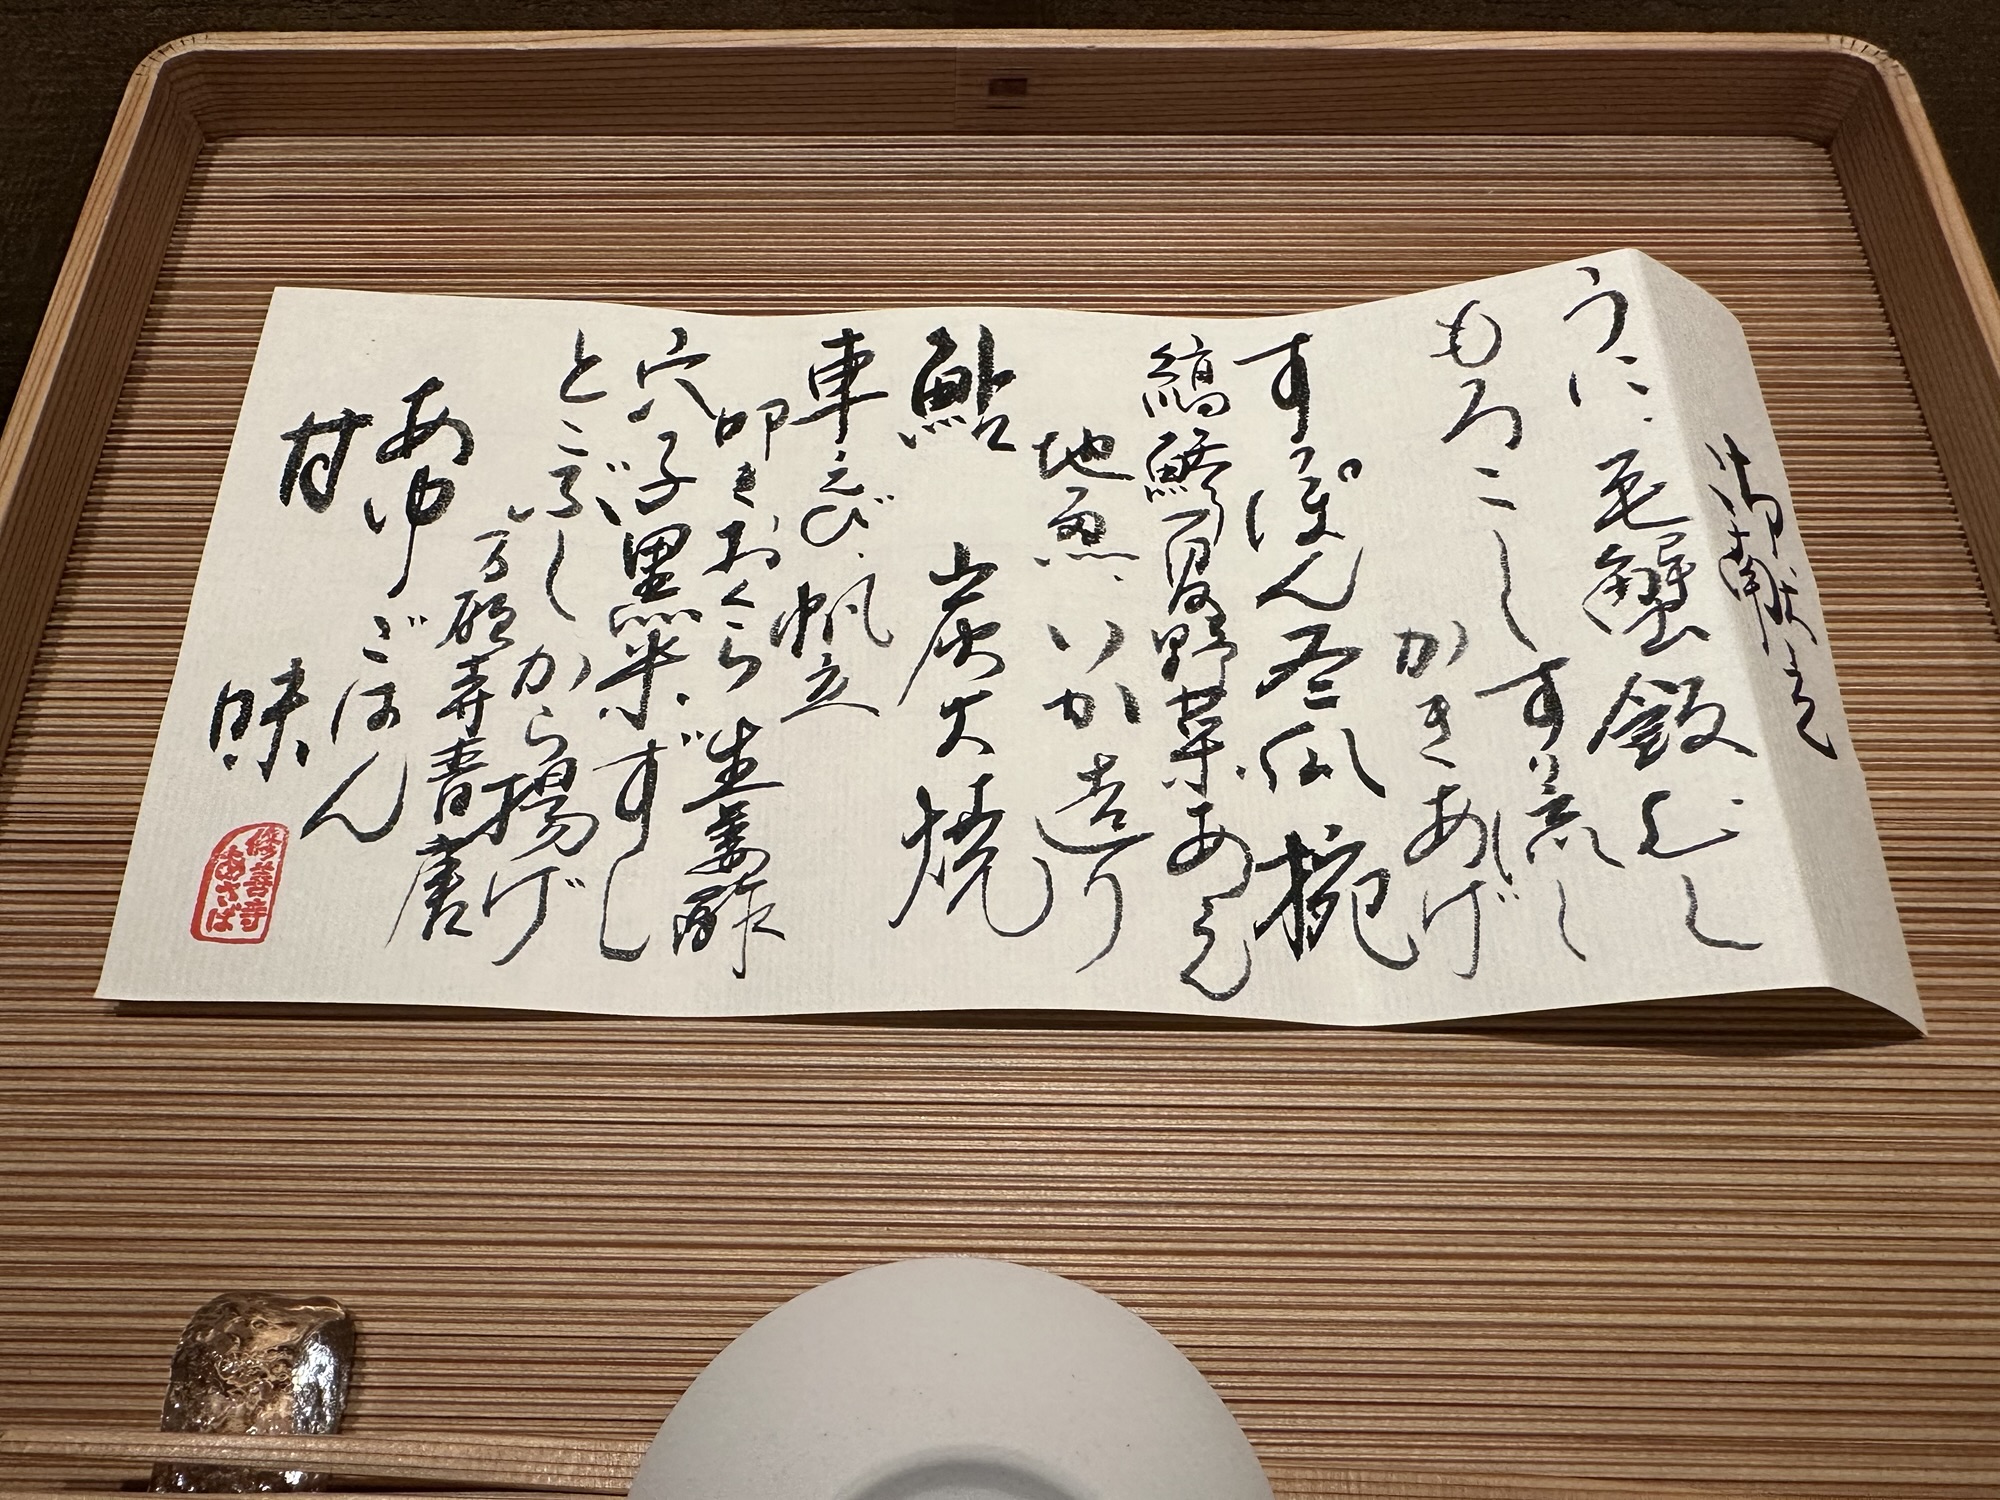 御献立
うに、毛蟹飯むし
もろこしすり流し
かきあげ
すっぽん冬瓜椀
縞鯵夏野菜あえ
地魚、いか造り
鮎 炭火焼
車えび、帆立
叩きおくら生姜酢
穴子黒米ずし
とこぶしから揚げ
万願寺青唐
あゆごはん
甘味
修善寺
あさば